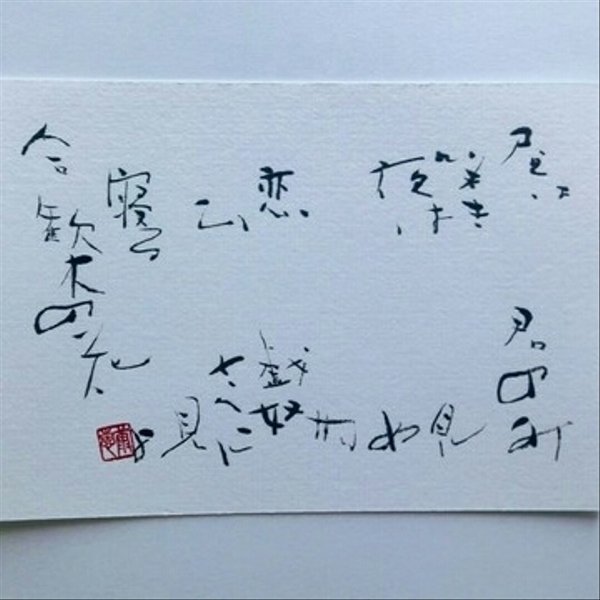 昼は
咲き
夜は
恋
ひ
寝る
合歓木の花
君のみ
見
め
戯奴
さへに
見よ